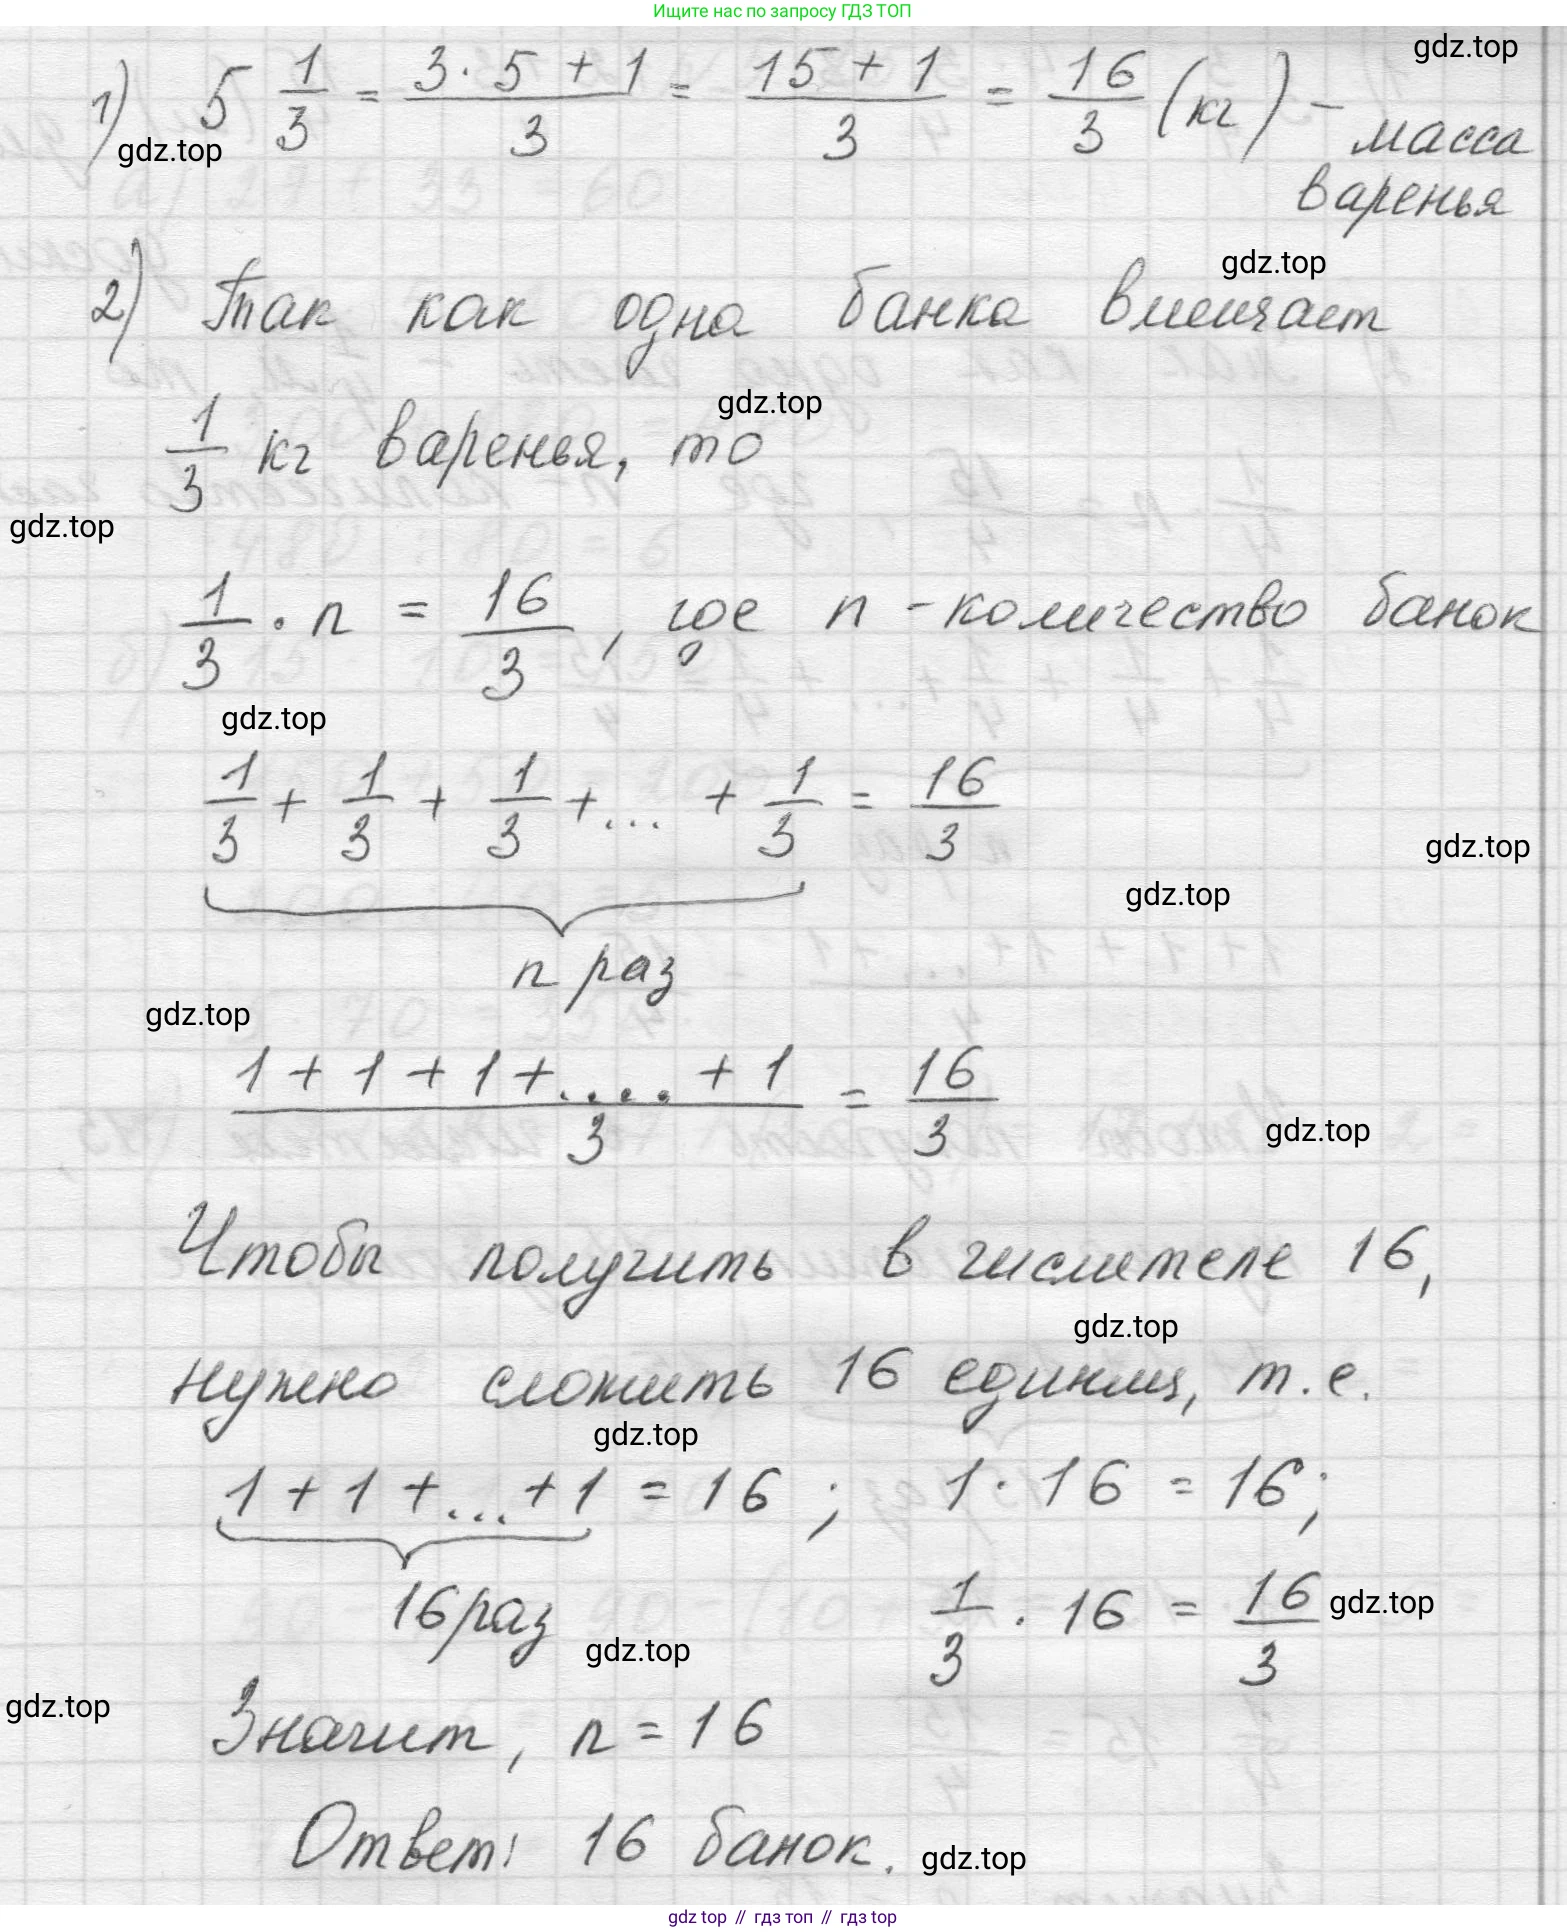 Ищите нас по запросу ГДЗ ТОП
gdz.top
1) 5 1/3 = (3 · 5 + 1)/3 = (15 + 1)/3 = 16/3 (кг) – масса
gdz.top
варенья
gdz.top
2) Так как одна банка вмещает
gdz.top
1/3 кг варенья, то
gdz.top
1/3 · n = 16/3, где n - количество банок
gdz.top
1/3 + 1/3 + 1/3 + ... + 1/3 = 16/3
gdz.top
gdz.top
n раз
gdz.top
(1 + 1 + 1 + .... + 1)/3 = 16/3
gdz.top
Чтобы получить в числителе 16,
gdz.top
нужно сложить 16 единиц, т.е.
gdz.top
1 + 1 + ... + 1 = 16 ; 1 · 16 = 16;
16 раз 1/3 · 16 = 16/3
gdz.top
gdz.top
gdz.top
Значит, n = 16
Ответ: 16 банок.
gdz.top
gdz top // гдз топ // гдз top